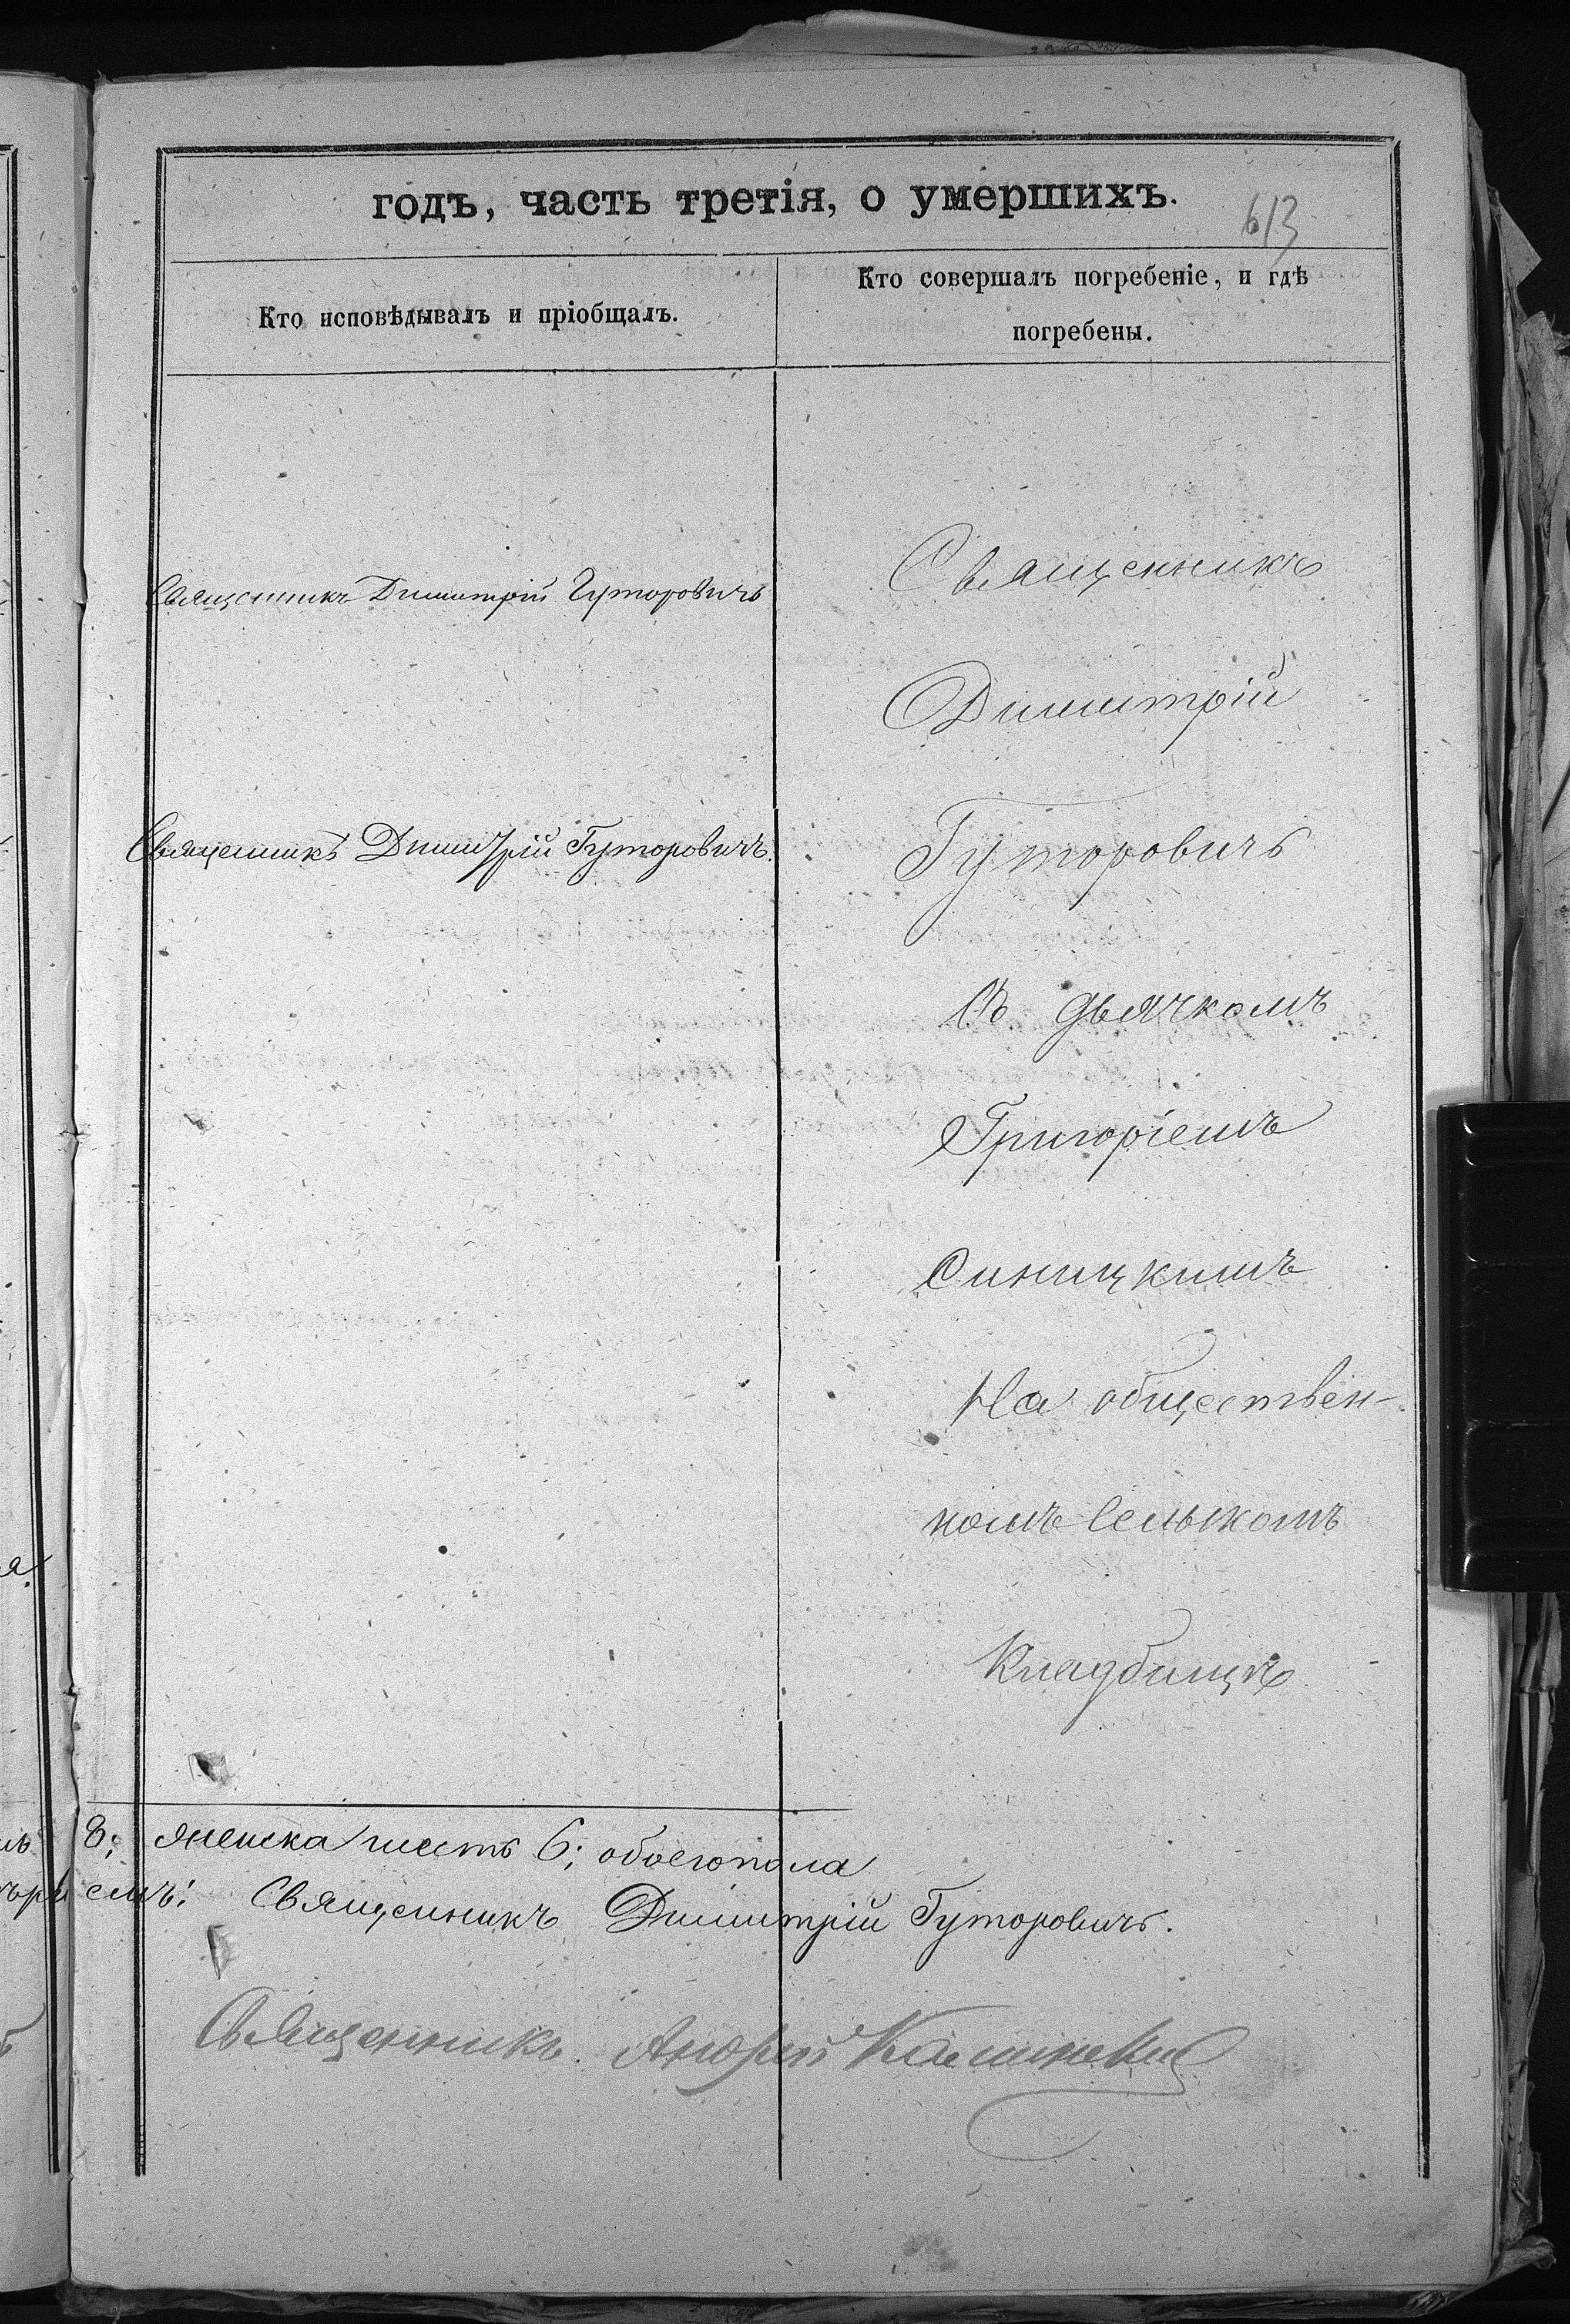 годъ, часть третія, о умершихъ.
613
Кто исповѣдывалъ и пріобщалъ.
Кто совершалъ погребеніе, и гдѣ
погребены.
Священникъ Димитрій Гуторовичъ
Священникъ Димитрій Гуторовичъ.
Священникъ
Димитрій
Гуторовичъ
Съ дьячкомъ
Григоріемъ
Синицкимъ
На обществен-
номъ сельскомъ
Кладбищѣ
8; женска шесть 6; обоего пола
емъ: Священникъ Димитрій Гуторовичъ.
Священникъ Андрей